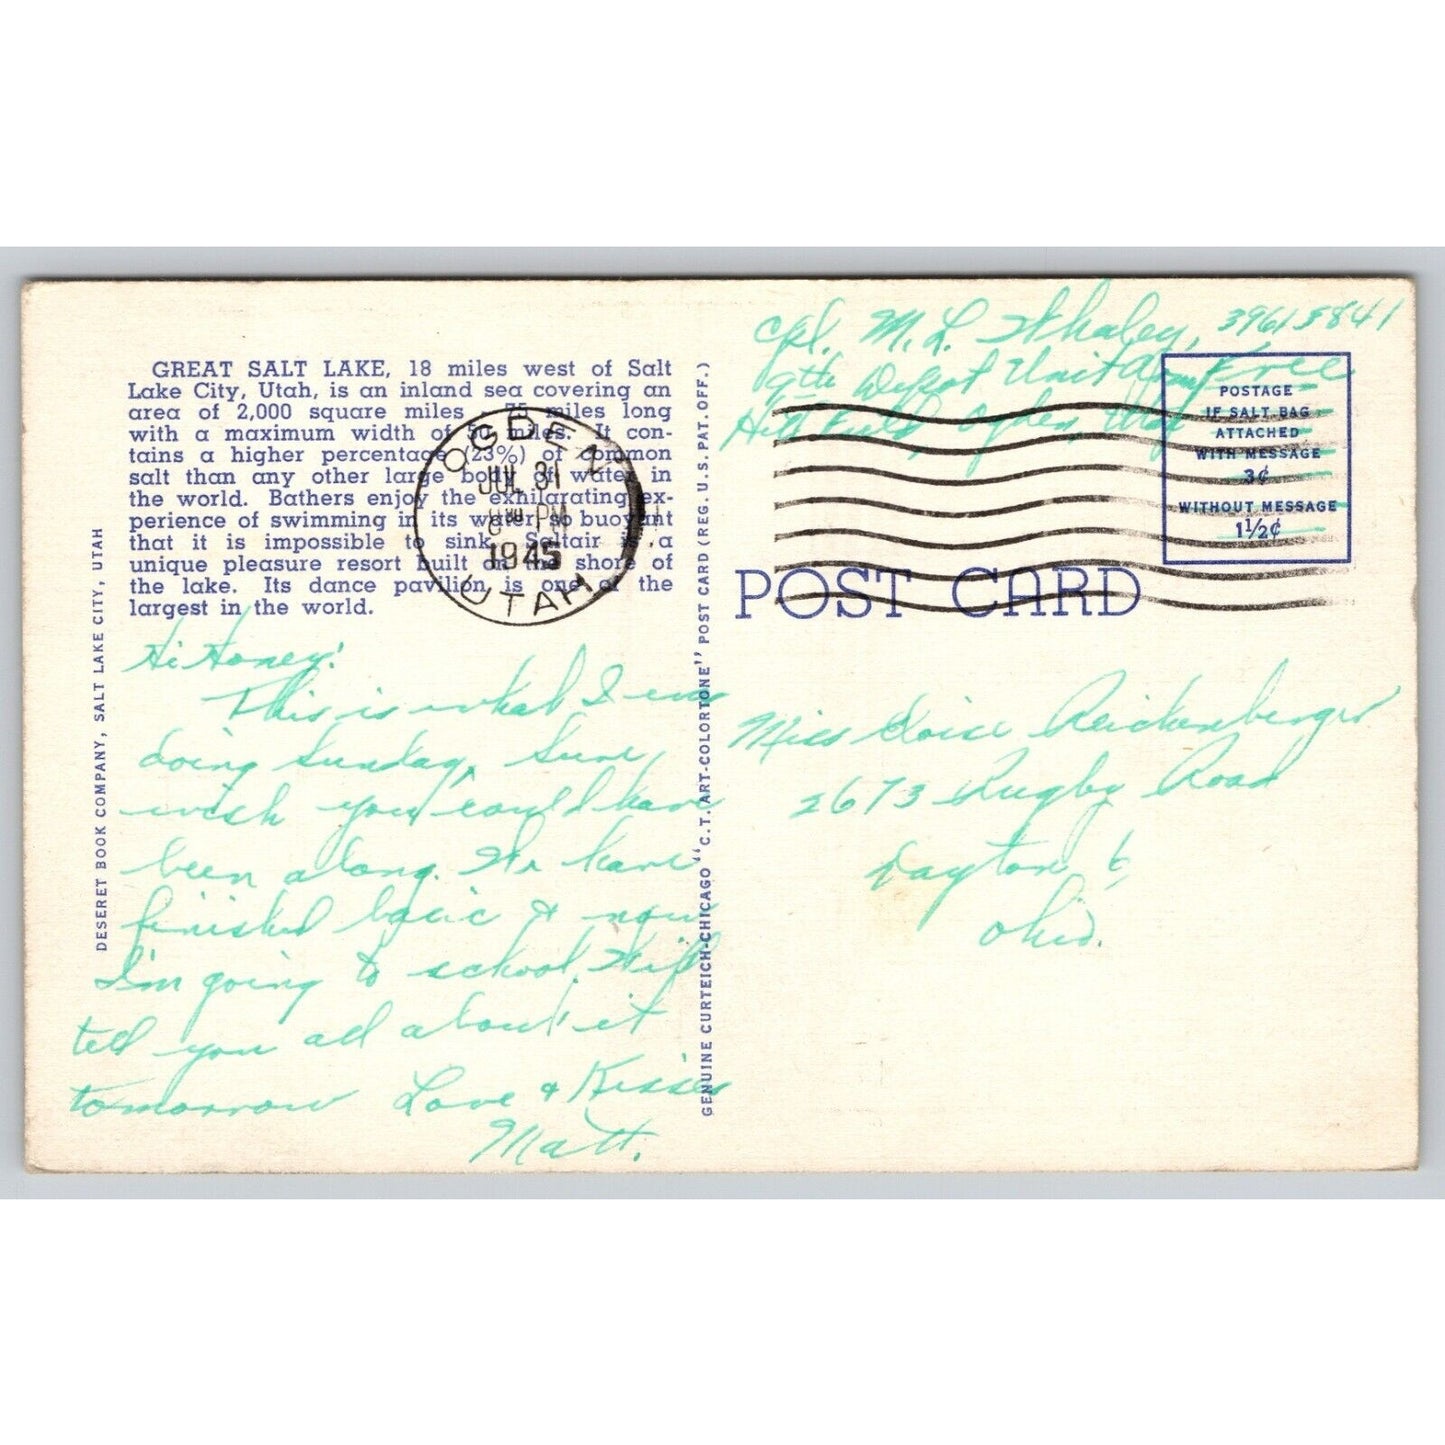 GREAT SALT LAKE, 18 miles west of Salt
Lake City, Utah, is an inland sea covering an
area of 2,000 square miles : 75 miles long
with a maximum width of 50 miles. It con-
tains a higher percentage (23%) of common
salt than any other large body of water in
the world. Bathers enjoy the exhilarating ex-
perience of swimming in its water, so buoyant
that it is impossible to sink. Saltair is a
unique pleasure resort built on the shore of
the lake. Its dance pavilion is one of the
largest in the world.
OGDEN
JUL 31
8 PM
1945
UTAH
Hi Honey:
This is what I was
doing Sunday, Sure
wish you could have
been along. We have
finished basic & now
I'm going to school. Will
tell you all about it
tomorrow Love & Kisses
Matt.
DESERET BOOK COMPANY, SALT LAKE CITY, UTAH
GENUINE CURTEICH-CHICAGO "C.T. ART-COLORTONE" POST CARD (REG. U.S. PAT. OFF.)
Cpl. M. L. Whaley, 39615841
9th Depot Unit Army Free
Hill Field, Ogden, Utah
POSTAGE
IF SALT BAG
ATTACHED
WITH MESSAGE
3¢
WITHOUT MESSAGE
1½¢
POST CARD
Miss Eloise Reichenberger
2673 Rugby Road
Dayton 6,
Ohio.